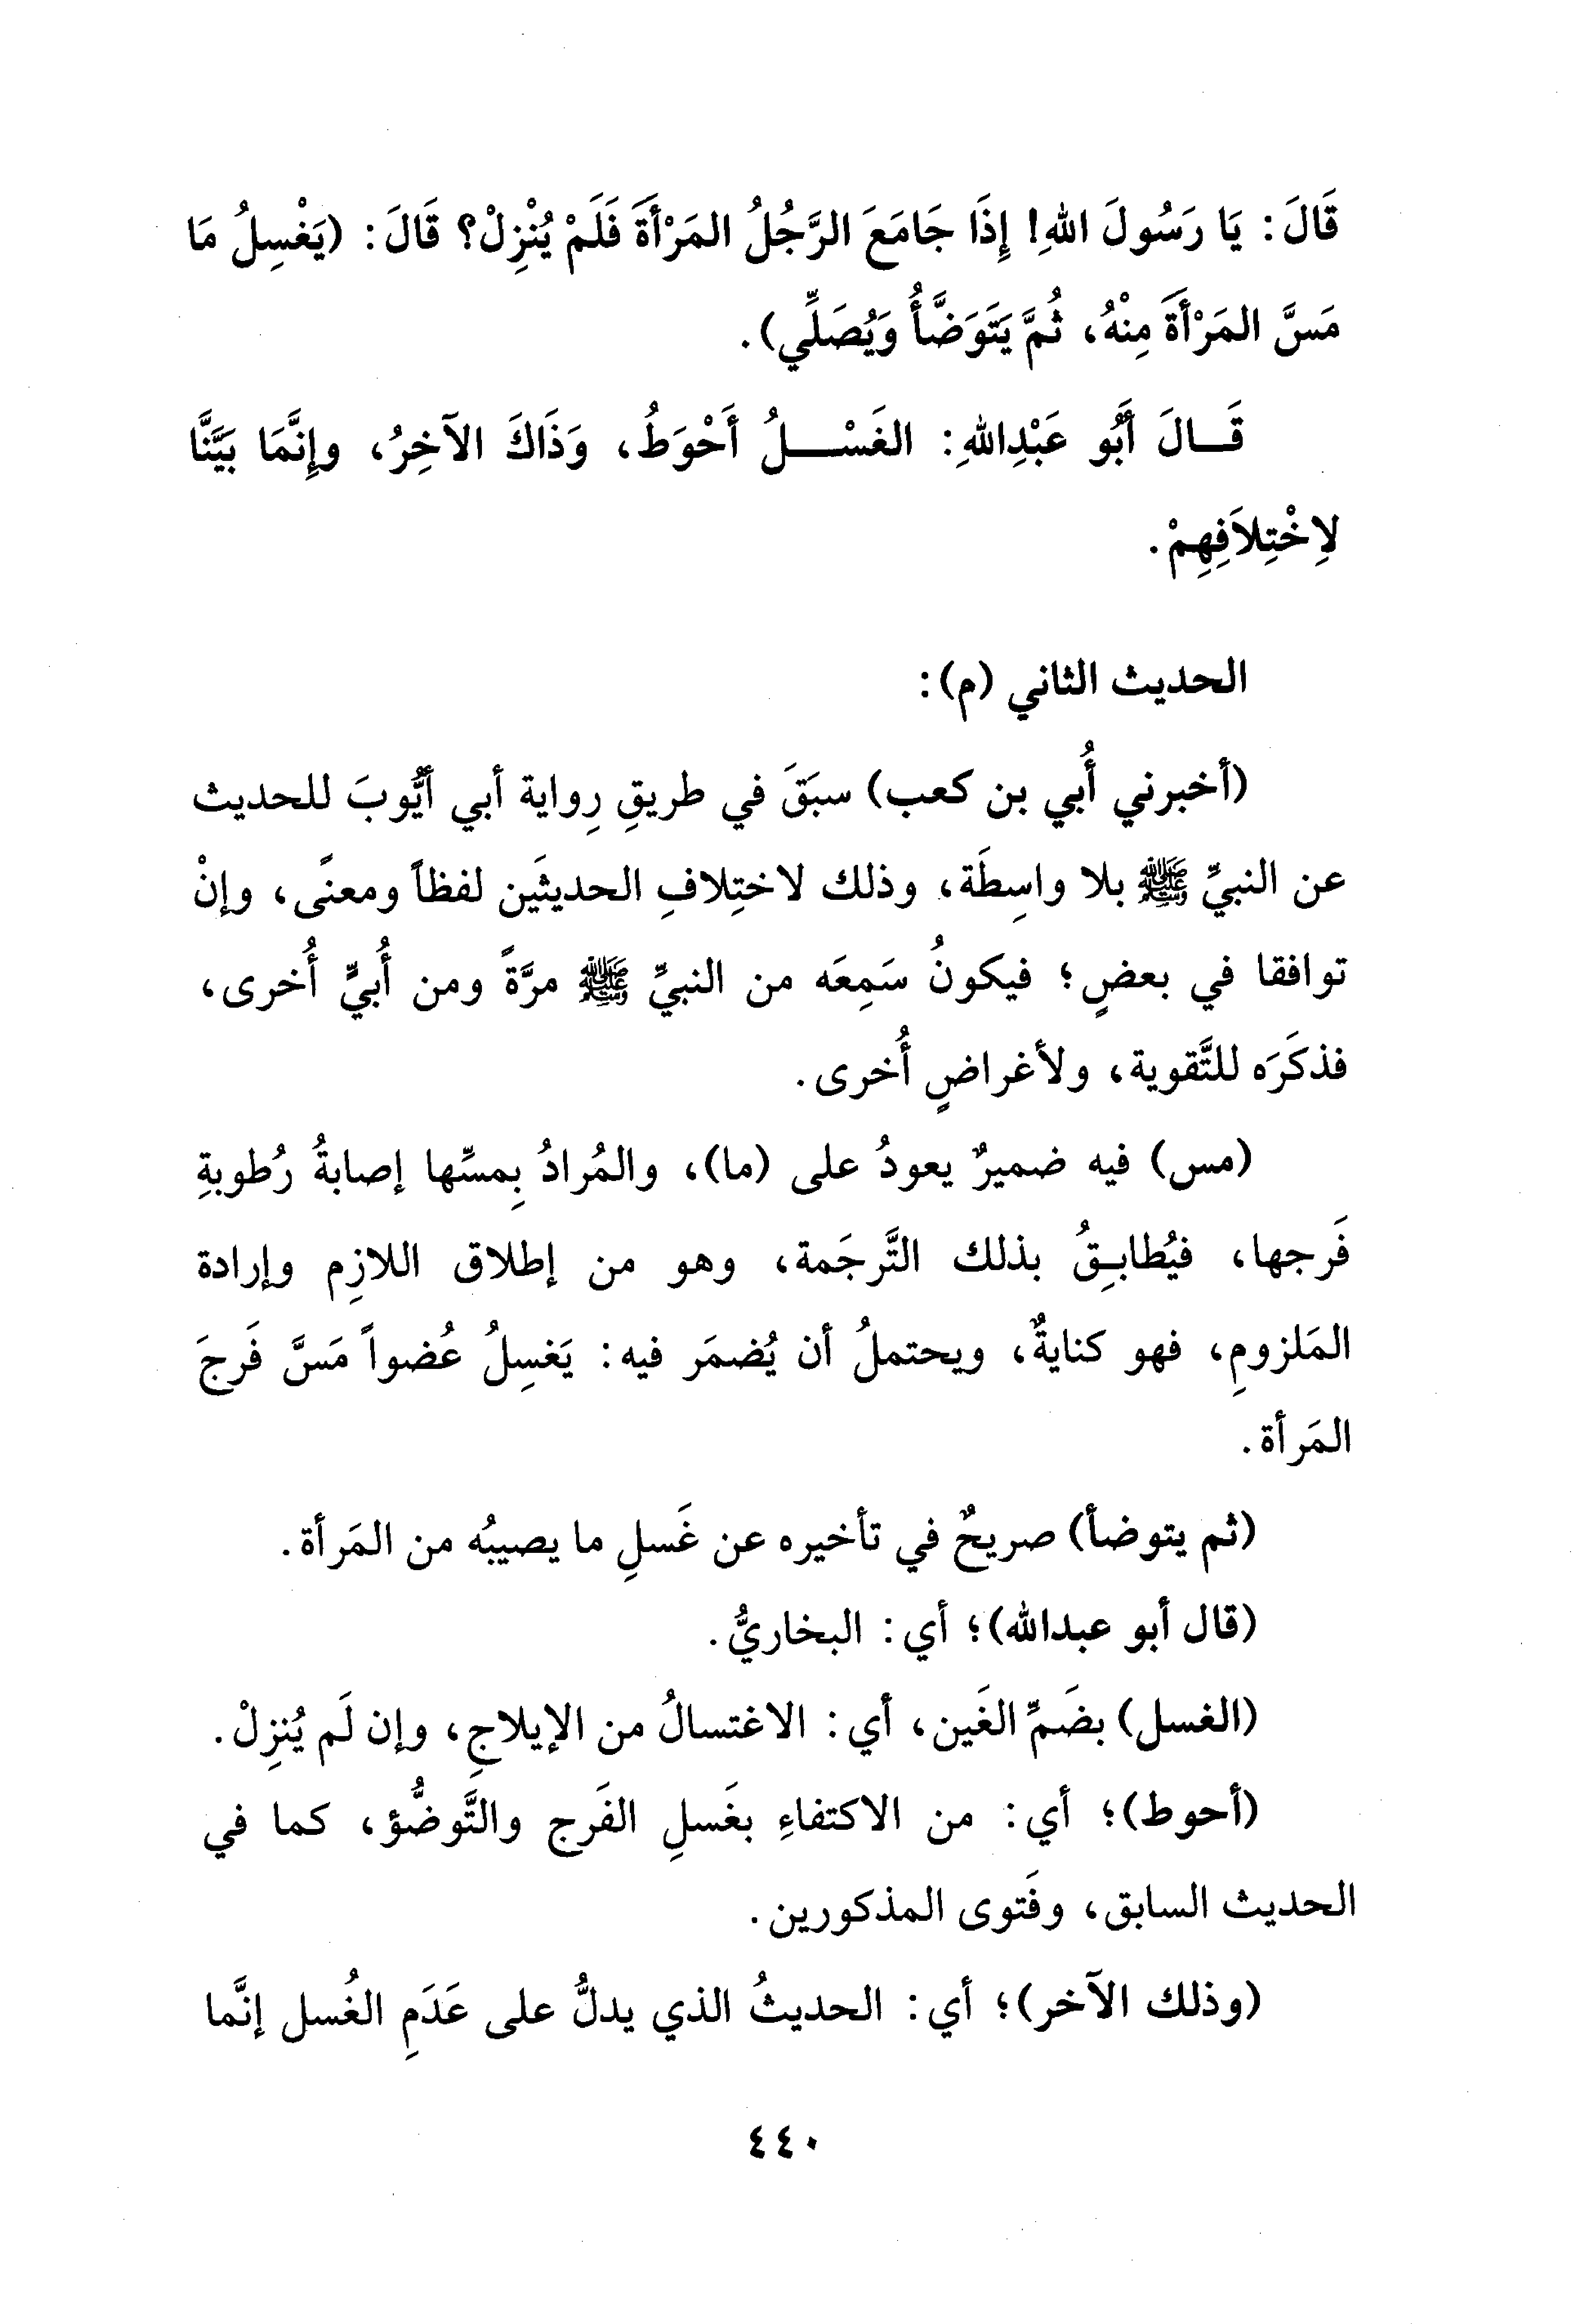 قَالَ: يَا رَسُولَ اللهِ! إِذَا جَامَعَ الرَّجُلُ المَرْأَةَ فَلَمْ يُنْزِلْ؟ قَالَ: (يَغْسِلُ مَا
مَسَّ المَرْأَةَ مِنْهُ، ثُمَّ يَتَوَضَّأُ وَيُصَلِّي).
قَــالَ أَبُو عَبْدِاللهِ: الغَسْــــلُ أَحْوَطُ، وَذَاكَ الآخِرُ، وإِنَّمَا بَيَّنَّا
لِاخْتِلاَفِهِمْ.
الحديث الثاني (م):
(أخبرني أُبي بن كعب) سبَقَ في طريقِ رِواية أبي أيُّوبَ للحديث
عن النبيِّ ﷺ بلا واسِطَة، وذلك لاختِلافِ الحديثَين لفظاً ومعنًى، وإنْ
توافقا في بعضٍ؛ فيكونُ سَمِعَه من النبيِّ ﷺ مرَّةً ومن أُبيٍّ أُخرى،
فذكَرَه للتَّقوية، ولأغراضٍ أُخرى.
(مس) فيه ضميرٌ يعودُ على (ما)، والمُرادُ بِمسِّها إصابةُ رُطوبةِ
فَرجها، فيُطابـِقُ بذلك التَّرجَمة، وهو من إطلاق اللازِم وإرادة
المَلزومِ، فهو كنايةٌ، ويحتملُ أن يُضمَر فيه: يَغسِلُ عُضواً مَسَّ فَرجَ
المَرأة.
(ثم يتوضأ) صريحٌ في تأخيره عن غَسلِ ما يصيبُه من المَرأة.
(قال أبو عبدالله)؛ أي: البخاريُّ.
(الغسل) بضَمِّ الغَين، أي: الاغتسالُ من الإيلاجِ، وإن لَم يُنزِلْ.
(أحوط)؛ أي: من الاكتفاءِ بغَسلِ الفَرج والتَّوضُّؤ، كما في
الحديث السابق، وفَتوى المذكورين.
(وذلك الآخر)؛ أي: الحديثُ الذي يدلُّ على عَدَمِ الغُسل إنَّما
٤٤٠